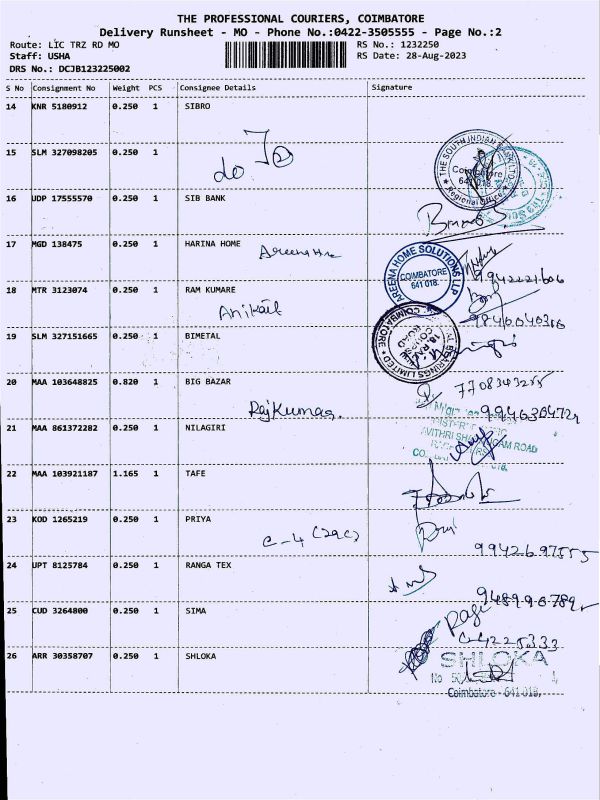 THE PROFESSIONAL COURIERS, COIMBATORE
Delivery Runsheet - MO - Phone No.:0422-3505555 - Page No.:2
Route: LIC TRZ RD MO
RS No.: 1232250
Staff: USHA
RS Date: 28-Aug-2023
DRS No.: DCJB123225002
S No Consignment No Weight PCS Consignee Details Signature
14 KNR 5180912 0.250 1 SIBRO
15 SLM 327098205 0.250 1
do
THE SOUTH INDIAN
Coimbatore
641 018.
Regional Office
16 UDP 17555570 0.250 1 SIB BANK
17 MGD 138475 0.250 1 HARINA HOME
AREENA HOME SOLUTIONS LLP
COIMBATORE
641 018.
9942221606
18 MTR 3123074 0.250 1 RAM KUMARE
19 SLM 327151665 0.250 1 BIMETAL
BEARINGS LIMITED
COIMBATORE
20 MAA 103648825 0.820 1 BIG BAZAR
7708343255
Rajkumar.
21 MAA 861372282 0.250 1 NILAGIRI
ROAD
22 MAA 103921187 1.165 1 TAFE
23 KOD 1265219 0.250 1 PRIYA
C-4 (29C)
24 UPT 8125784 0.250 1 RANGA TEX
25 CUD 3264800 0.250 1 SIMA
26 ARR 30358707 0.250 1 SHLOKA
SHLOKA
No
Coimbatore - 641 018.